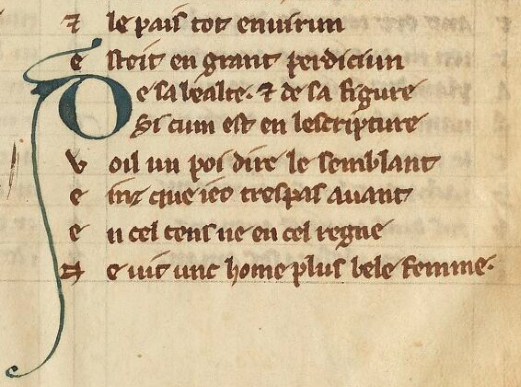 ⁊ le pais tot enuirun
e stoit en grant perdiciun
De sa bealte. ⁊ de sa figure
Si cum est en lescripture
v oil un poi dire le semblant
e inz que ieo trespas auant
e n cel tens ne en cel regne
N e uit unc home plus bele femme.